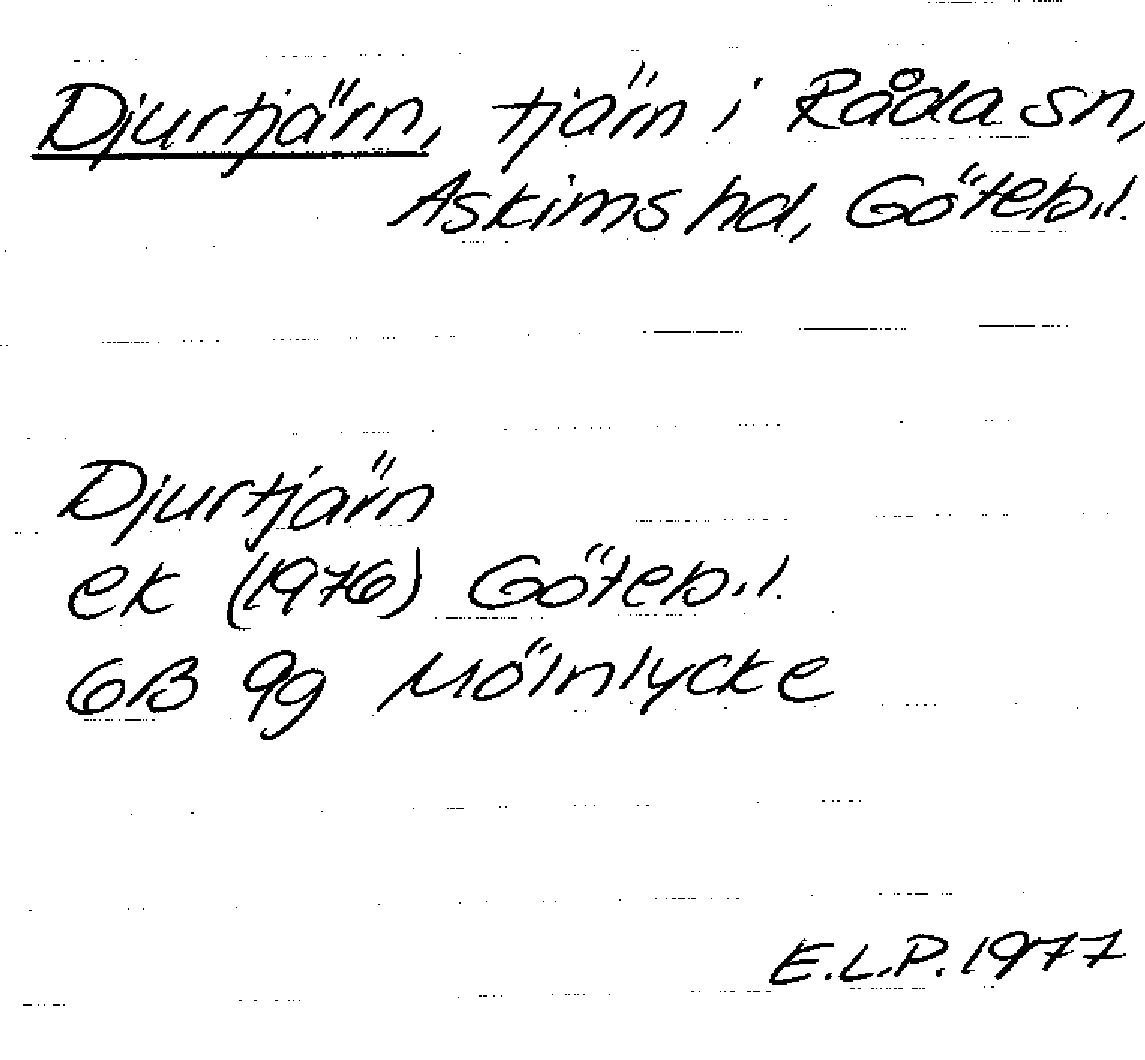 Djurtjärn, tjärn i Råda sn,
Askims hd, Göteb.l.
Djurtjärn
ek (1976) Göteb.l.
6B 9g Mölnlycke
E.L.P. 1977